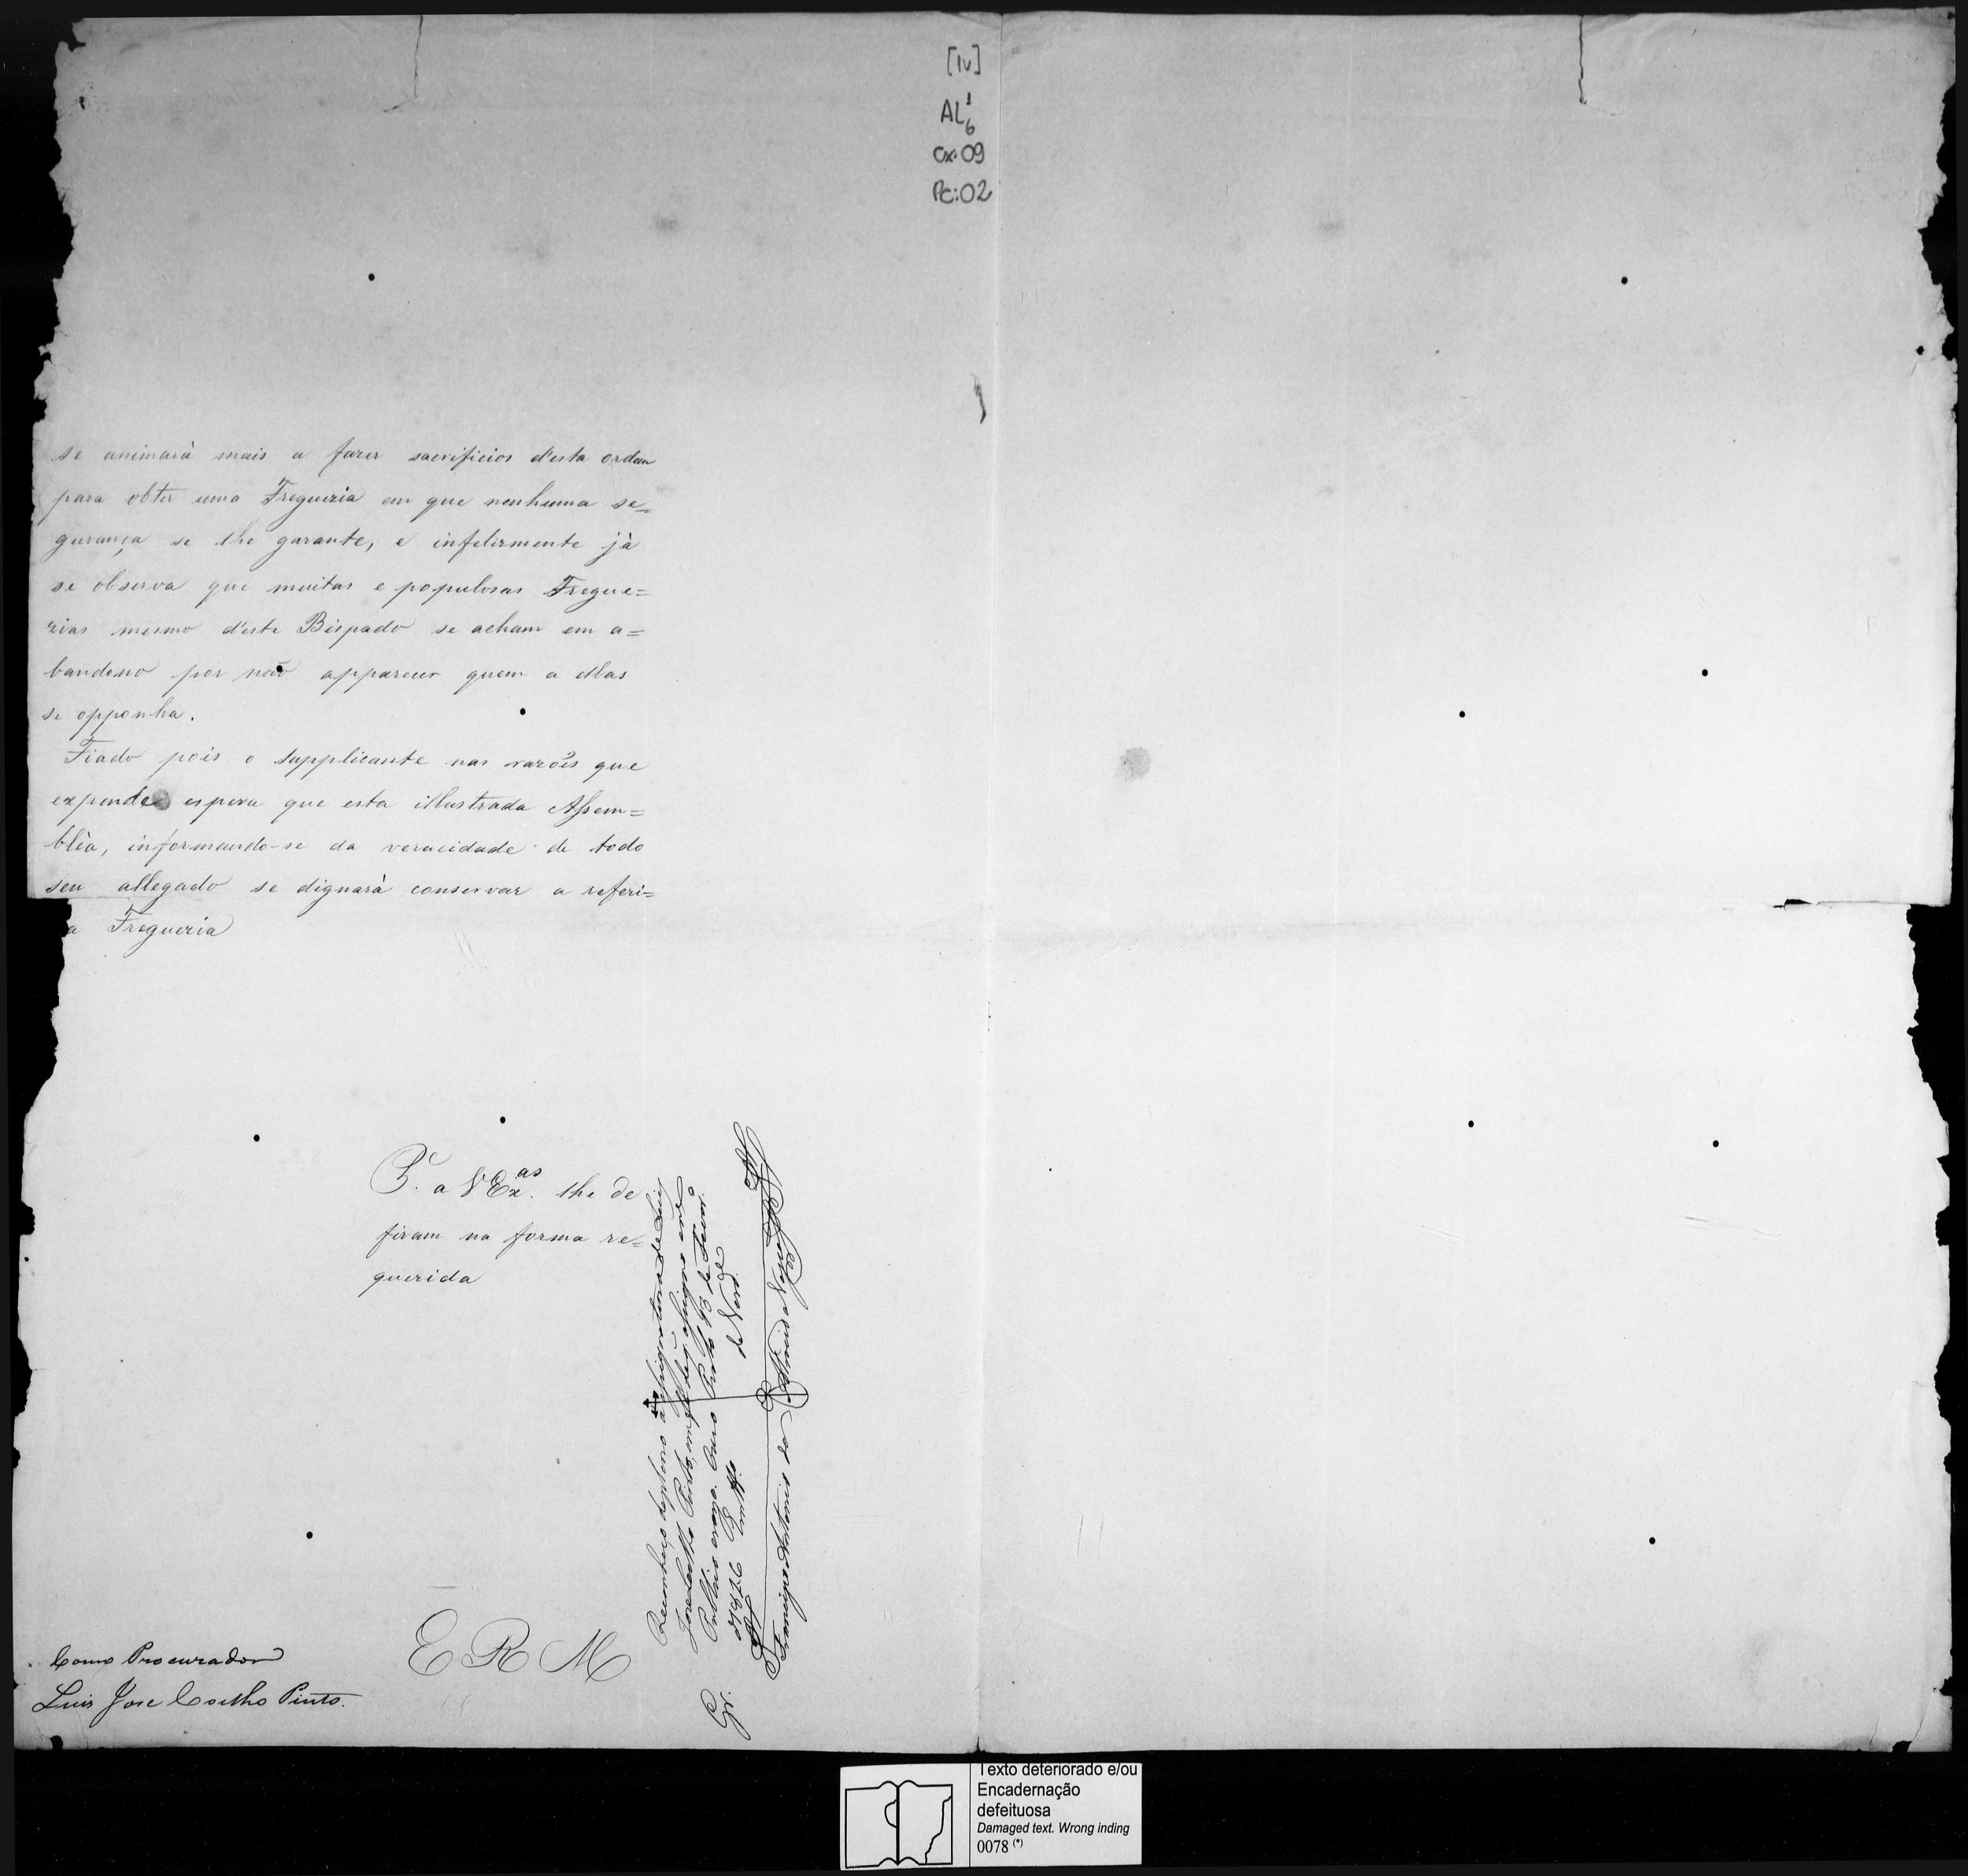 [1v]
AL 1
6
Cx: 09
Pc: 02
se animarà mais a fazer sacrificios d'esta ordem
para obter uma Freguezia em que nenhuma se=
gurança se lhe garante, e infelizmente jà
se observa que muitas e populosas Fregue=
zias mesmo d'este Bispado se acham em a=
bandono por não apparecer quem a ellas
se opponha.
Fiado pois o supplicante nas razões que
expende espera que esta illustrada Assem=
blèa, informando-se da veracidade de todo
seu allegado se dignarà conservar a referi=
a Freguezia
P. a VEx.as lhe de
firam na forma re=
querida
E R M
Como Procurador
Luis Jose Coelho Pinto.
Reconheço a assignatura de Luis
Jose Coelho Pinto, em
Publico e razo. Ouro Preto 13 de Fever.o
de 1876
Em test.o de Verd.e
Francisco Antonio de
Texto deteriorado e/ou
Encadernação
defeituosa
Damaged text. Wrong inding
0078 (*)